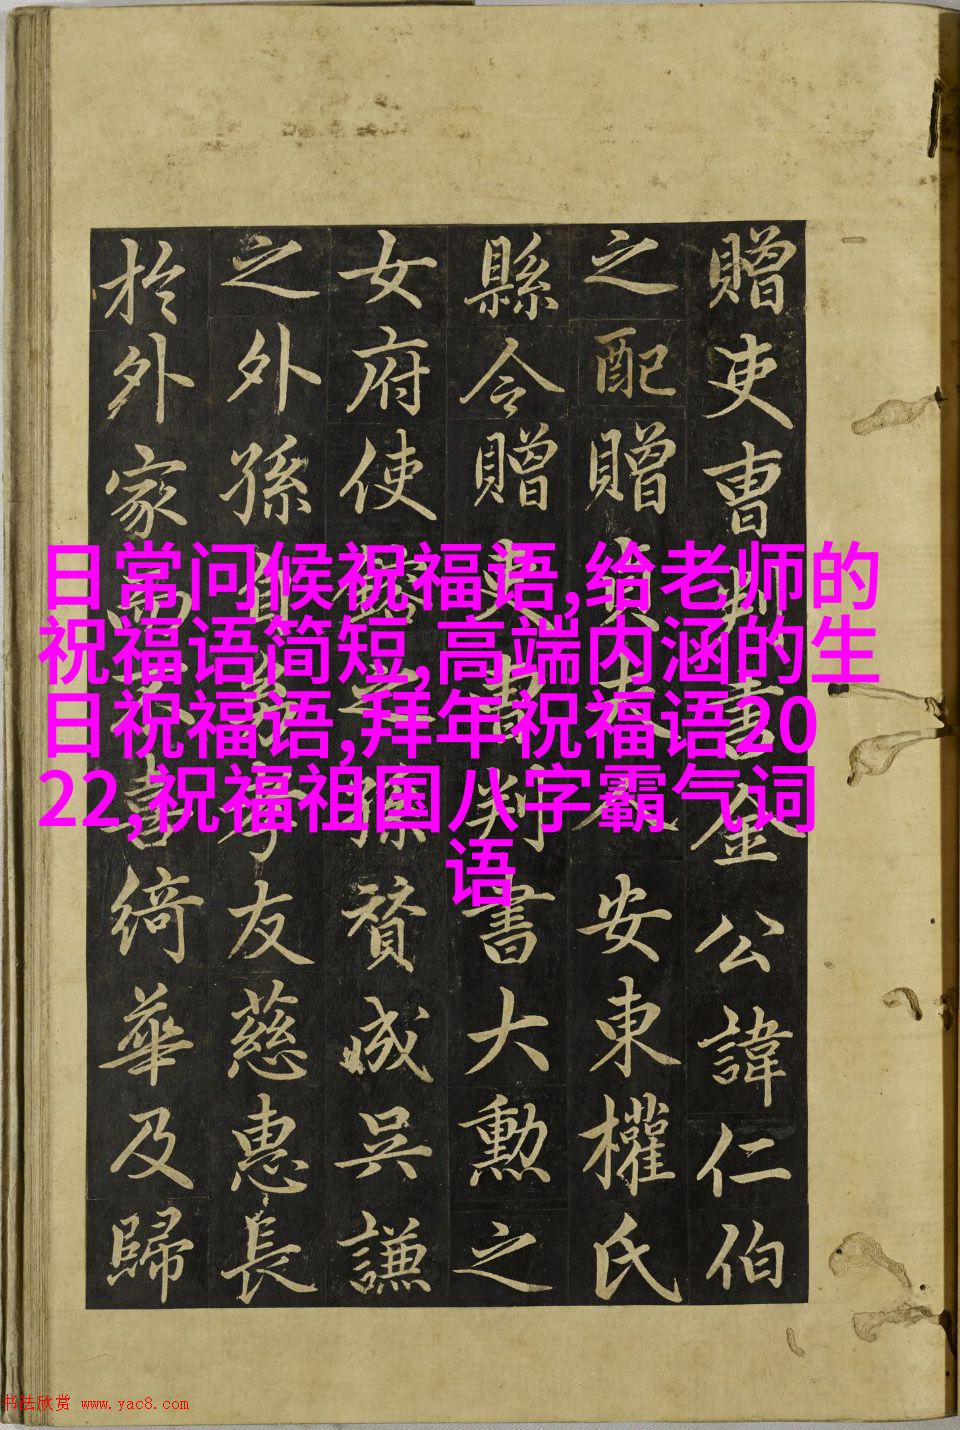 贈吏曹判書金公諱仁伯
之配贈安東權氏
縣令贈判書大勳之
女府使孫贊成吳謙
之外孫孝友慈惠長
於外家書綺華及歸
日常问候祝福语,给老师的
祝福语简短,高端内涵的生
日祝福语,拜年祝福语20
22,祝福祖国八字霸气词
语
书法欣赏 www.yac8.com